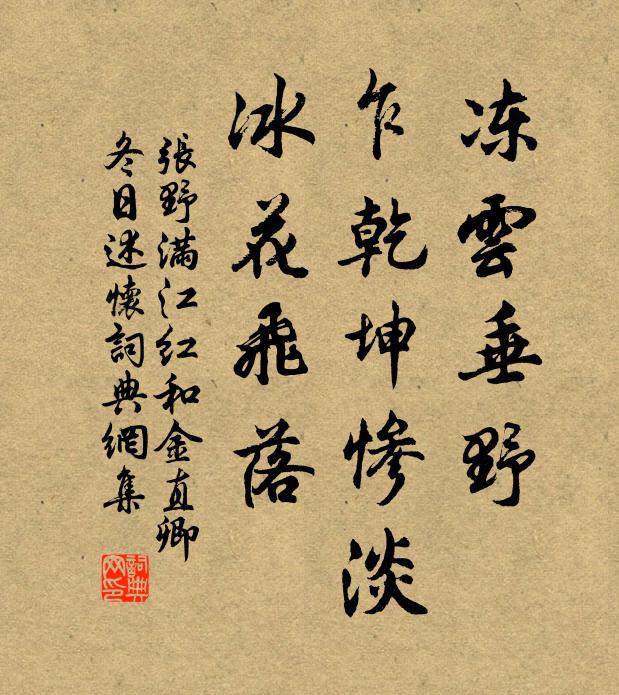 冻雲垂野
乍乾坤慘淡
冰花飛落
張野滿江红和金直卿
冬日述懷詞典網集
詞典网印